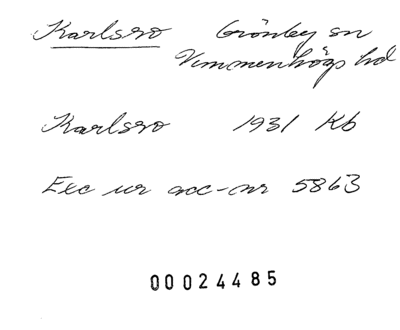 Karlsro Grönby sn
Vemmenhögs hd
Karlsro 1931 Kb
Exc ur acc-nr 5863
00024485